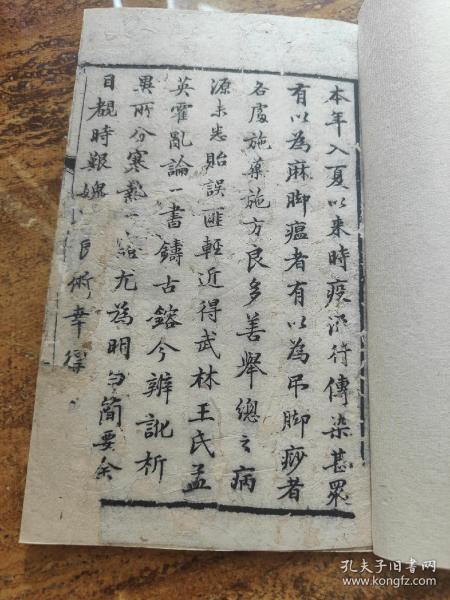 本年入夏以來時疫沿行傳染甚眾
有以為麻脚瘟者有以為吊脚痧者
各處施藥施方良多善舉總之病
源未悉貽誤匪輕近得武林王氏孟
英霍亂論一書鑄古鎔今辨訛析
異所分寒熱二 尤為明白簡要余
目覩時艱媿 良術幸得
孔夫子旧书网
www.kongfz.com